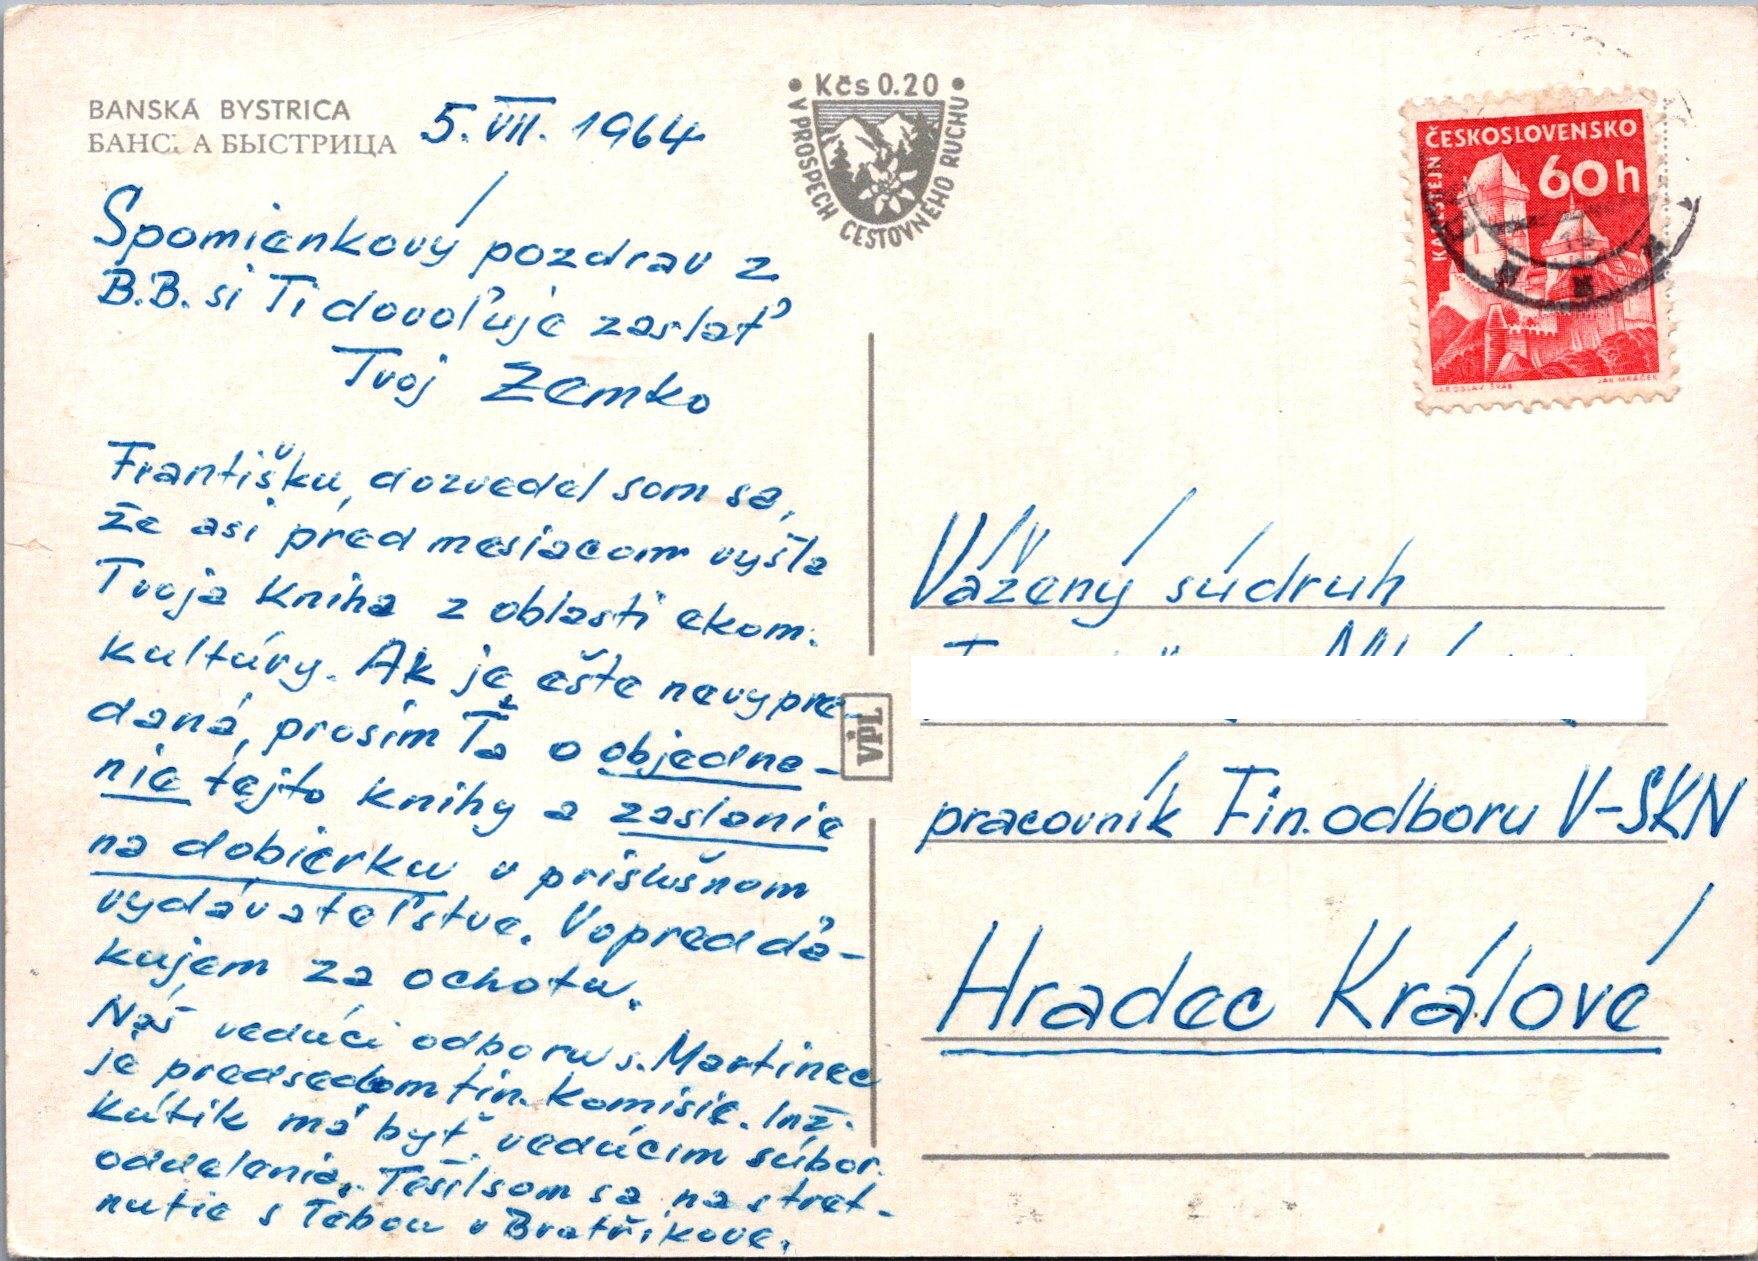 BANSKÁ BYSTRICA
БАНС А БЫСТРИЦА
5. VII. 1964
Kčs 0.20
V PROSPECH CESTOVNÉHO RUCHU
ČESKOSLOVENSKO
60 h
KARLŠTEJN
JAROSLAV ŠVÁB
JAN MRÁČEK
Spomienkový pozdrav z
B.B. si Ti dovoľuje zaslať
Tvoj Zemko
Františku, dozvedel som sa,
že asi pred mesiacom vyšla
Tvoja kniha z oblasti ekom.
kultúry. Ak je ešte nevypre-
daná, prosím Ťa o objedna-
nie tejto knihy a zaslanie
na dobierku v príslušnom
vydávateľstve. Vopred ďa-
kujem za ochotu.
Náš vedúci odboru s. Martinec
je predsedom fin. komisie. Inž.
Kútik má byť vedúcim súbor.
oddelenia. Tešil som sa na stret-
nutie s Tebou v Bratříkove.
VPL
Vážený súdruh
pracovník Fin. odboru V-SKN
Hradec Králové